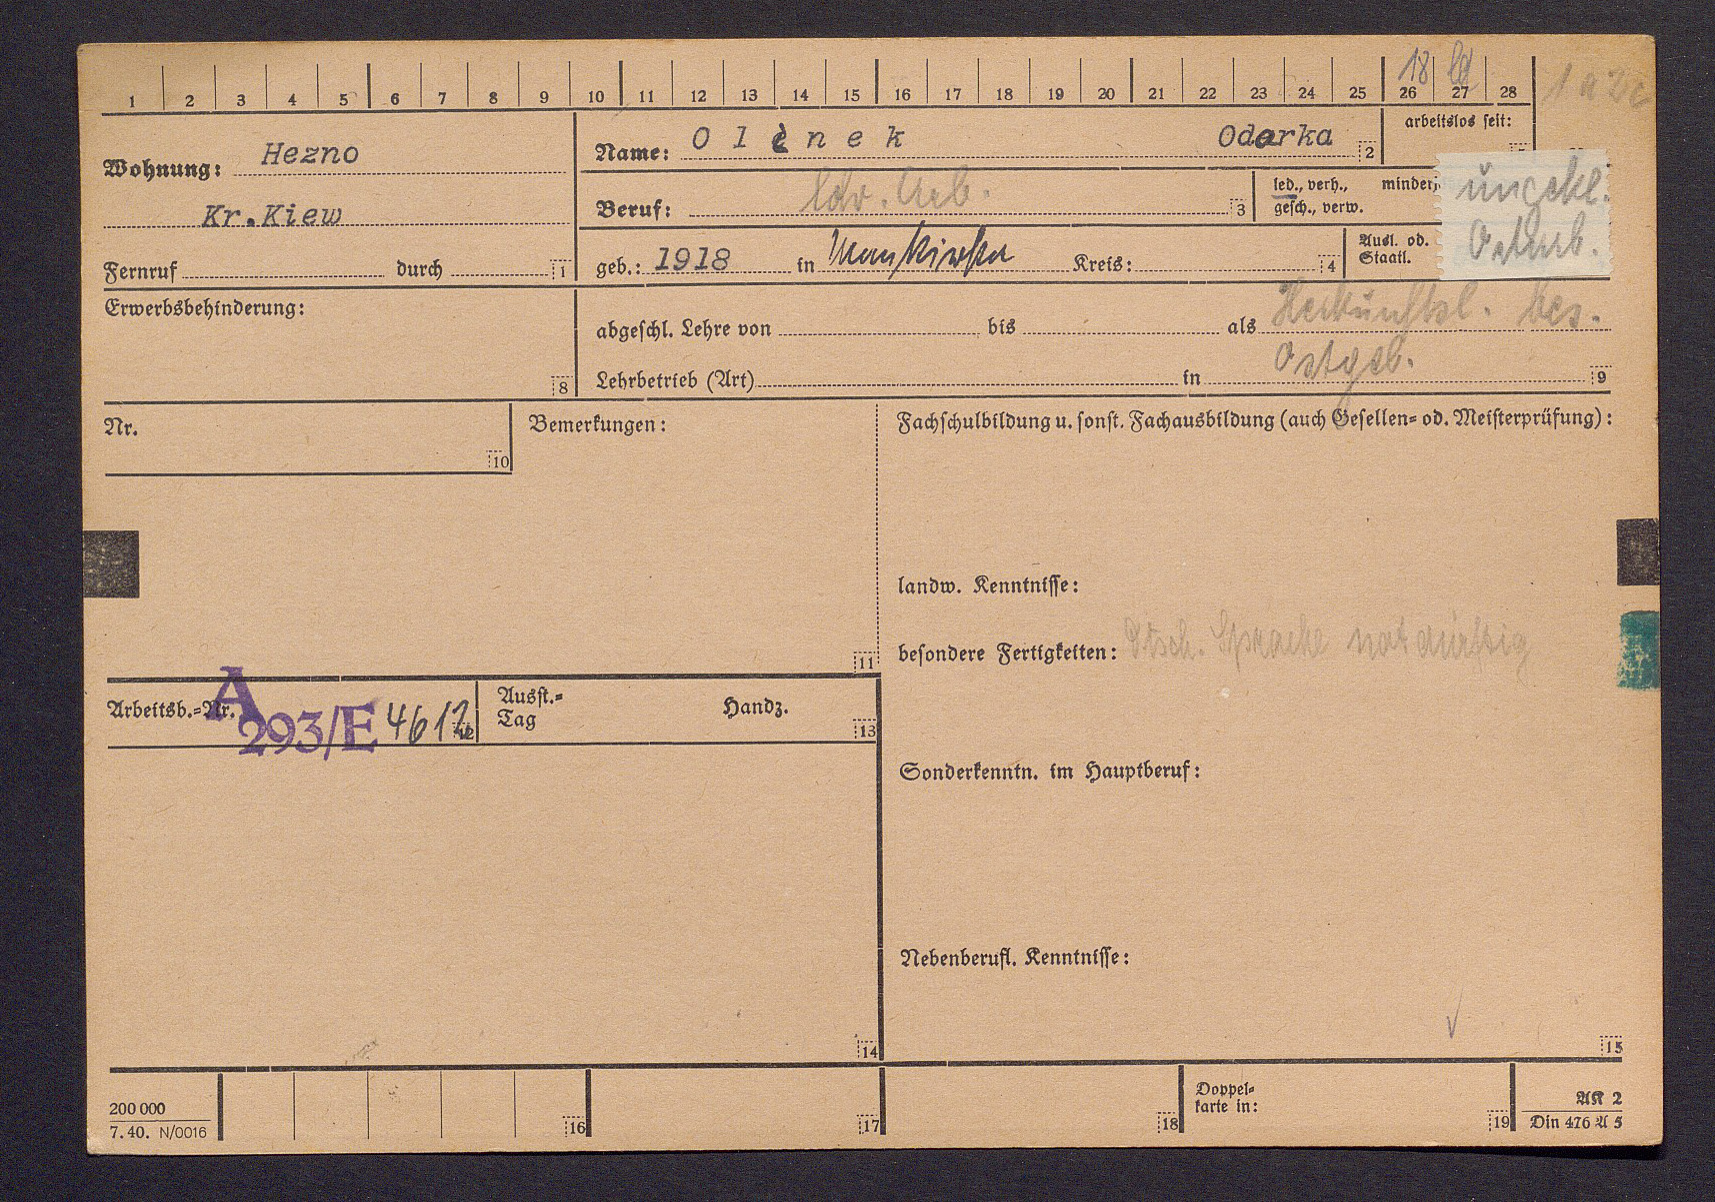 18 ld 1 a 2c
1 2 3 4 5 6 7 8 9 10 11 12 13 14 15 16 17 18 19 20 21 22 23 24 25 26 27 28
arbeitslos seit:
Wohnung: Hezno
Name: Olenek Odarka 2
Kr.Kiew
Beruf: ldw. Arb. 3
led., verh., minderj
gesch., verw.
ungekl.
Ostarb.
Fernruf durch 1
geb.: 1918 in Kreis: 4
Ausl. od.
Staatl.
Erwerbsbehinderung:
8
Herkunftsl. bes.
abgeschl. Lehre von bis als
Ostgeb.
Lehrbetrieb (Art) in 9
Nr.
10
Bemerkungen:
11
Fachschulbildung u. sonst. Fachausbildung (auch Gesellen= od. Meisterprüfung):
landw. Kenntnisse:
besondere Fertigkeiten: Dtsch. Sprache notdürftig
Arbeitsb.=Nr. A 293/E 4612 12
Ausst.=
Tag
Handz.
13
Sonderkenntn. im Hauptberuf:
Nebenberufl. Kenntnisse:
14
15
200 000
7. 40. N/0016
16
17
18
Doppel=
karte in:
19
AK 2
Din 476 A 5